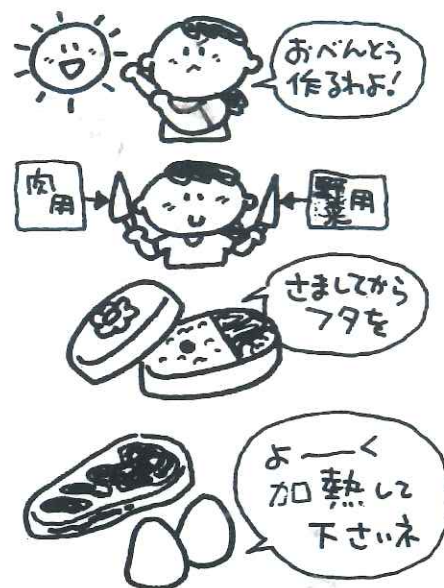 おべんとう
作るわよ!
肉用
野菜用
さましてから
フタを
よーく
加熱して
下さいネ